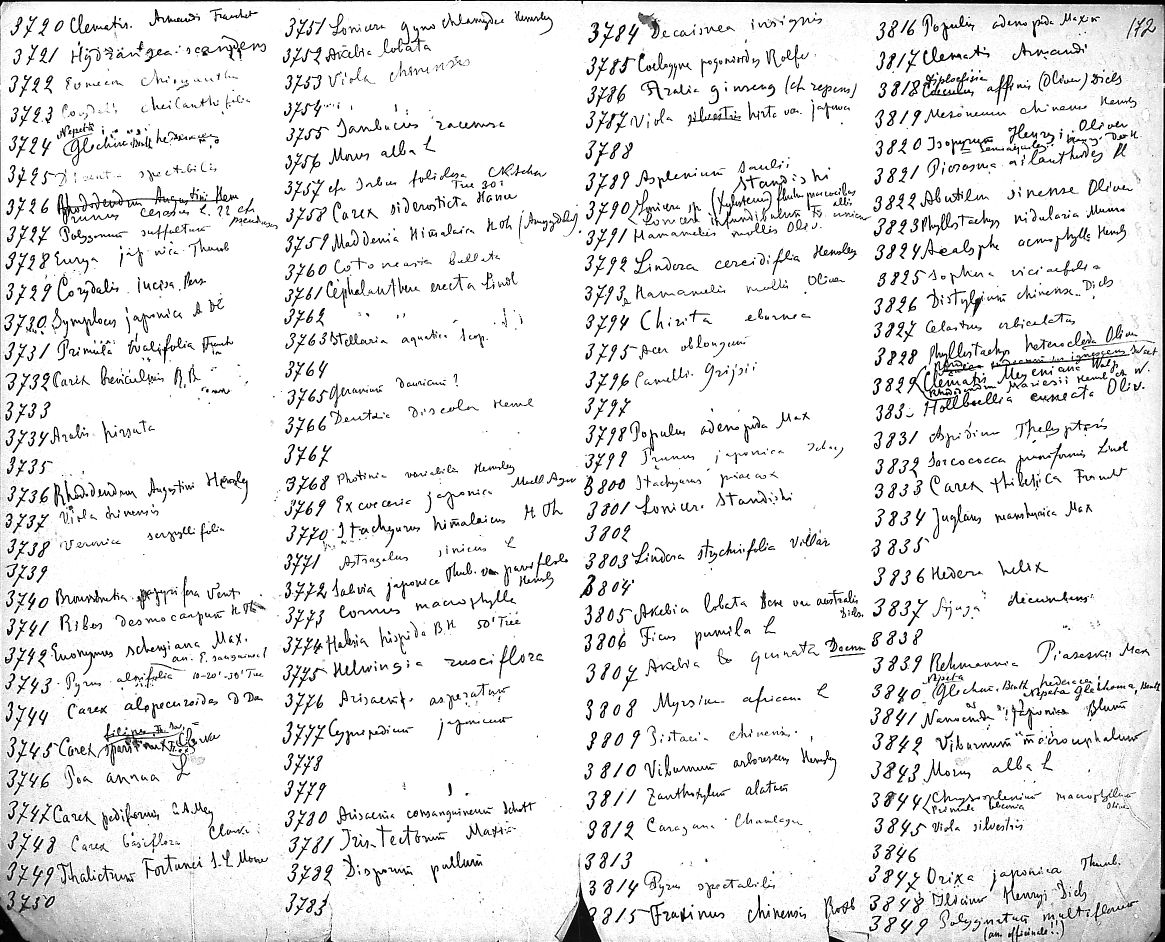 172
3720 Clematis. Armandi Franchet
3721 Hydrangea scandens
3722 Eomecon chionantha
3723 Corydalis cheilanthifolia
3724 Nepeta Glechoma Benth hederacea
3725 Dicentra spectabilis
3726 Rhododendron Augustini Hem
Prunus cerasus L.
3727 Polygonum suffultum
3728 Eurya japonica Thunb
3729 Corydalis incisa Pers
3730 Symplocos japonica A DC
3731 Primula ovalifolia Franch
3732 Carex breviculmis R.B.
3733
3734 Arabis hirsuta
3735
3736 Rhododendron Augustini Hemsley
3737 Viola chinensis
3738 Veronica serpyllifolia
3739
3740 Broussonetia papyrifera Vent
3741 Ribes desmocarpum H Th
3742 Evonymus schensiana Max.
3743 Pyrus alnifolia 10-20'-30' Tree
3744 Carex alopecuroides D Don
3745 Carex Clarke
3746 Poa annua L
3747 Carex pediformis C.A.Mey
3748 Carex basiflora Clarke
3749 Thalictrum Fortunei S.L. Moore
3750
3751 Lonicera gynochlamydea Hemsley
3752 Akebia lobata
3753 Viola chinensis
3754 " "
3755 Sambucus racemosa
3756 Morus alba L
3757 cfr Sorbus foliolosa C.K.Schn
Tree 30'
3758 Carex siderosticta Hance
3759 Maddenia Himalaica H Th (Amygdal.)
3760 Cotoneaster bullata
3761 Cephalanthera erecta Lindl
3762 " "
3763 Stellaria aquatica Scop.
3764
3765 Geranium dauricum?
3766 Deutzia discolor Hemsl
3767
3768 Photinia variabilis Hemsley
3769 Excoecaria japonica Muell Agov
3770 Stachyurus himalaicus H Th
3771 Astragalus sinicus L
3772 Salvia japonica Thub. var parvifolia
Hemsley
3773 Cornus macrophylla
3774 Halesia hispida B.H. 50' Tree
3775 Helwingia rusciflora
3776 Arisaema. asperatum
3777 Cypripedium japonicum
3778
3779
3780 Arisaema consanguineum Schott
3781 Iris. Tectorum Maxim
3782 Disporum pullum
3783
3784 Decaisnea insignis
3785 Coelogyne pogonioides Rolfe.
3786 Aralia ginseng (ch repens)
3787 Viola silvestris hirta var japonica
3788
3789 Asplenium Saulii
Standishi
3790 Lonicera sp. (Xylosteum)
3791 Hamamelis mollis Oliv.
3792 Lindera cercidifolia Hemsley
3793 Hamamelis mollis Oliver
3794 Chirita eburnea
3795 Acer oblongum
3796 Camellia Grijsii
3797
3798 Populus adenopoda Max
3799 Prunus japonica
3800 Stachyurus praecox
3801 Lonicera Standishi
3802
3803 Lindera strychnifolia Villar
3804
3805 Akebia lobata Dcne var australis
Diels.
3806 Ficus pumila L
3807 Akebia quinata Decsne
3808 Myrsine africana L
3809 Pistacia chinensis.
3810 Viburnum arborescens Hemsley
3811 Zanthoxylum alatum
3812 Caragana Chamlagu
3813
3814 Pyrus spectabilis
3815 Fraxinus chinensis Roxb
3816 Populus adenopoda Maxim
3817 Clematis Armandi
3818 Diploclisia Cocculus affinis (Oliver) Diels
3819 Mezoneurum chinense Hemsl
3820 Isopyrum Henryi Oliver
3821 Picrasma ailanthodes Pl
3822 Abutilon sinense Oliver
3823 Phyllostachys nidularia Munro
3824 Acalypha acmophylla Hemsl
3825 Sophora viciaefolia
3826 Distylium chinense Diels
3827 Celastrus orbiculatus
3828 Phyllostachys heteroclada Oliver
3829 Clematis Meyeniana Walp
Rhododendron Mariesii Hemsl et W.
383- Hollboellia cuneata Oliv.
3831 Aspidium Thelypteris
3832 Sarcococca pruniformis Lindl
3833 Carex thibetica Franch
3834 Juglans manshurica Max
3835
3836 Hedera helix
3837 Ajuga decumbens
3838 "
3839 Rehmannia Piasezkii Max
3840 Nepeta Glechom. Benth hederacea
Nepeta Glechoma, Benth
3841 Nanocnide japonica Blum
3842 Viburnum macrocephalum
3843 Morus alba L
3844 Chrysosplenium macrophyllum
Oliver
3845 Viola silvestris
3846
3847 Orixa japonica Thunb.
3848 Illicium Henryi Diels
3849 Polygonatum multiflorum
(an officinale!!)